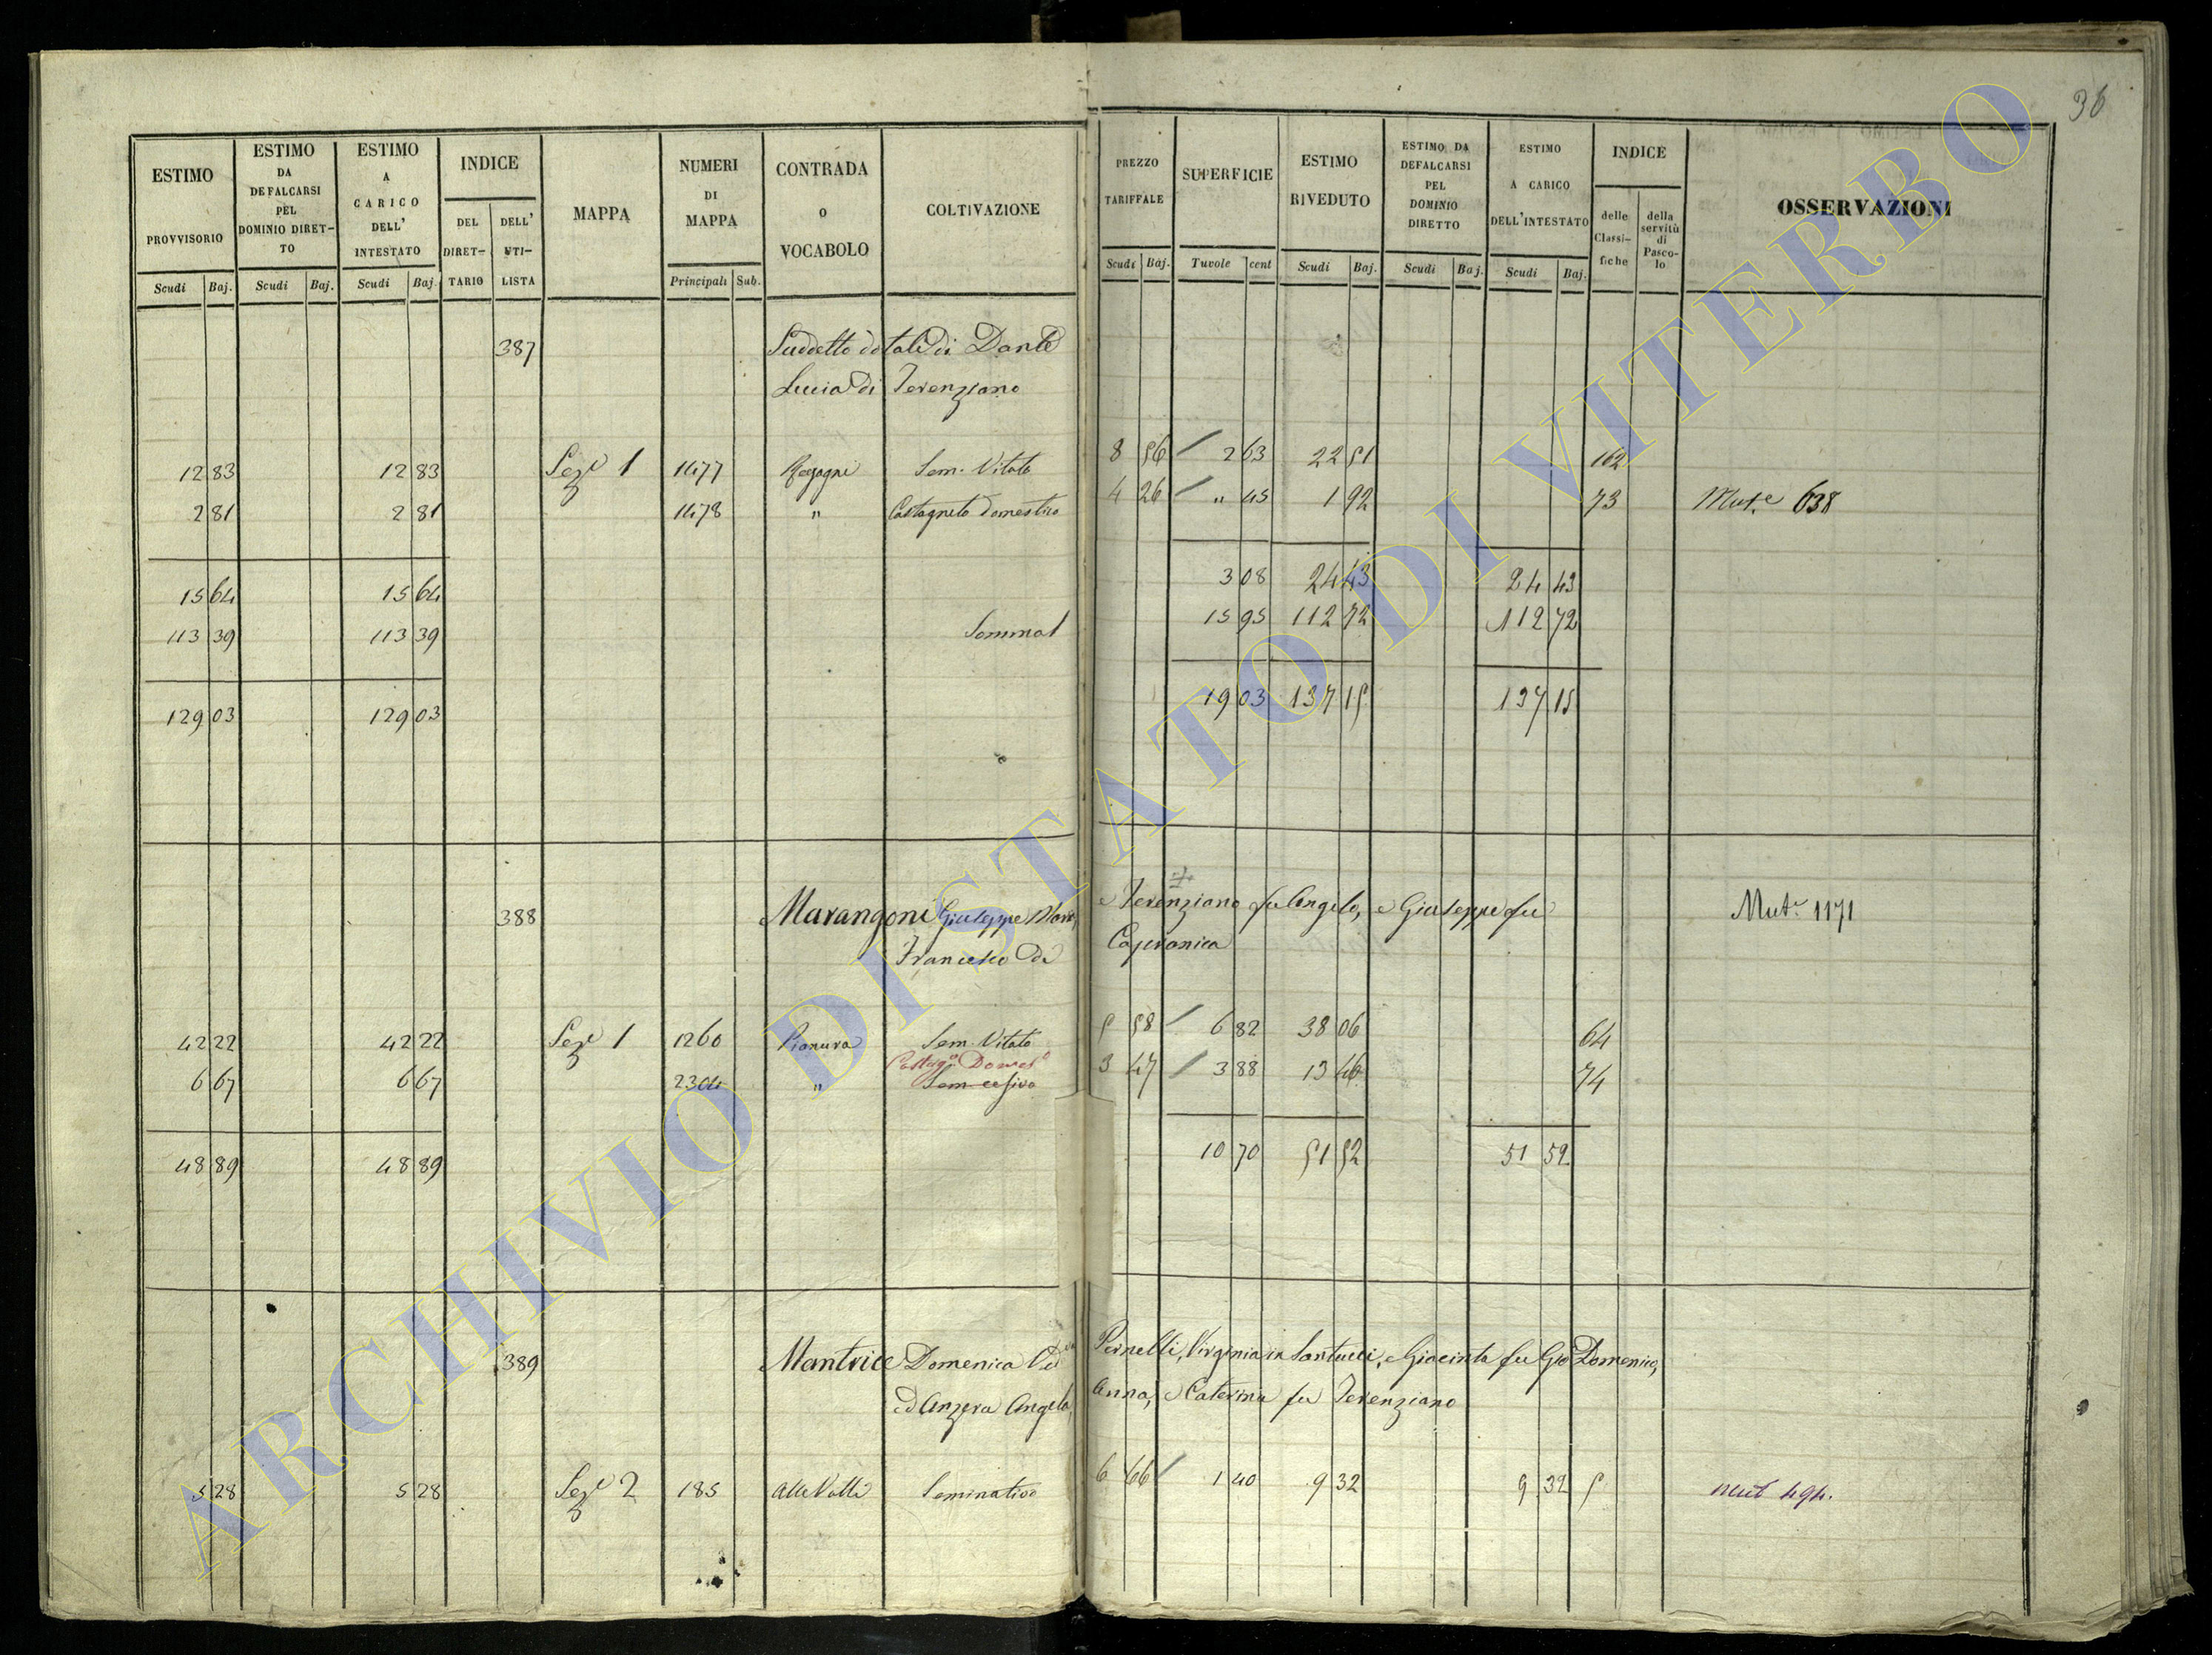 36
ESTIMO PROVVISORIO Scudi Baj. ESTIMO DA DEFALCARSI PEL DOMINIO DIRET-TO Scudi Baj. ESTIMO A CARICO DELL' INTESTATO Scudi Baj. INDICE DEL DIRET-TARIO DELL' UTI-LISTA MAPPA NUMERI DI MAPPA Principali Sub. CONTRADA O VOCABOLO COLTIVAZIONE PREZZO TARIFFALE Scudi Baj. SUPERFICIE Tavole cent ESTIMO RIVEDUTO Scudi Baj. ESTIMO DA DEFALCARSI PEL DOMINIO DIRETTO Scudi Baj. ESTIMO A CARICO DELL'INTESTATO Scudi Baj. INDICE delle Classi-fiche della servitù di Pasco-lo OSSERVAZIONI
387 Suddetto dotale di Dante
Lucia di Terenziano
12 83 12 83 Seze 1 1477 Sem. Vitato 8 56 / 2 63 22 51 162
2 81 2 81 1478 " Castagneto Domestico 4 26 / " 45 1 92 73 Mut.e 638
15 64 15 64 3 08 24 43 24 43
113 39 113 39 Somma 15 95 112 72 112 72
129 03 129 03 19 03 137 15 137 15
388 Marangoni Giuseppe e Terenziano fu Angelo, e Giuseppe fu Mutе 1171
Francesco Da Capranica
42 22 42 22 Seze 1 1260 Pianura Sem. Vitato 5 58 / 6 82 38 06 64
Castagn Domes
6 67 6 67 2304 " Sem 3 47 / 3 88 13 46 74
48 89 48 89 10 70 51 52 51 52
389 Mantrice Domenica Ved Pernelli, Virginia in Santucci, e Giacinta fu Gio Domenico,
ed Anzera Angela, Anna, e Caterina fu Terenziano
5 28 5 28 Seze 2 185 Alle Valli Seminativo 6 66 / 1 40 9 32 9 32 5 mut 494.
ARCHIVIO DI STATO DI VITERBO